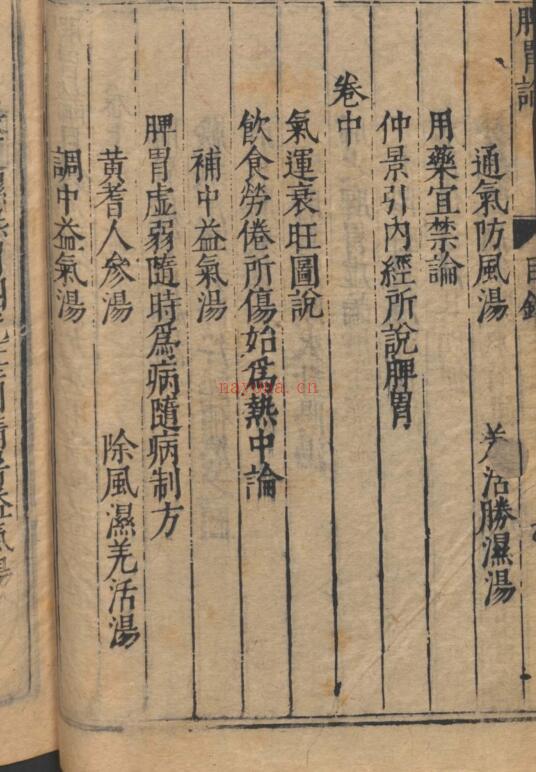 脾胃論
目錄
通氣防風湯 羌活勝濕湯
用藥宜禁論
仲景引內經所說脾胃
卷中
氣運衰旺圖說
飲食勞倦所傷始爲熱中論
補中益氣湯
脾胃虛弱隨時爲病隨病制方
黃耆人參湯 除風濕羌活湯
調中益氣湯
nayona.cn